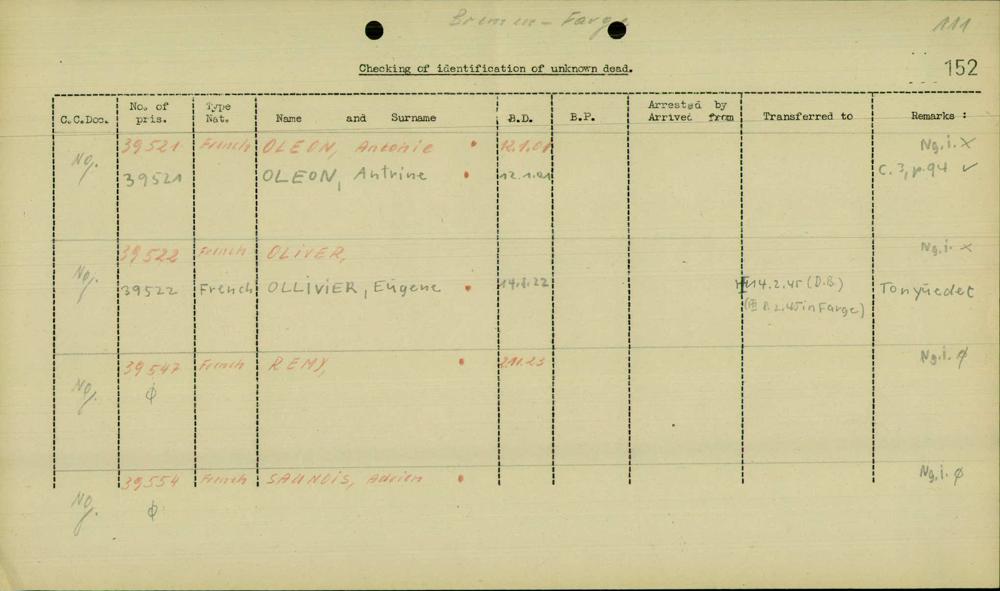 Bremen - Farge
111
Checking of identification of unknown dead.
152
C.C.Doc. No. of pris. Type Nat. Name and Surname B.D. B.P. Arrested by Arrived from Transferred to Remarks :
Ng. 39521 French OLEON, Antonie 12.1.01 Ng.i. x
39521 OLEON, Antrine 12.1.01 C. 3, p.94 ✓
Ng. 39522 French OLIVER, Ng.i. x
39522 French OLLIVIER, Eugene 14.2.45 (D.B.)
2.45 in Farge)
Ng. 39547 French REMY, Ng.i. ϕ
ϕ
Ng. 39554 French SAUNOIS, Adrien Ng.i. ϕ
ϕ